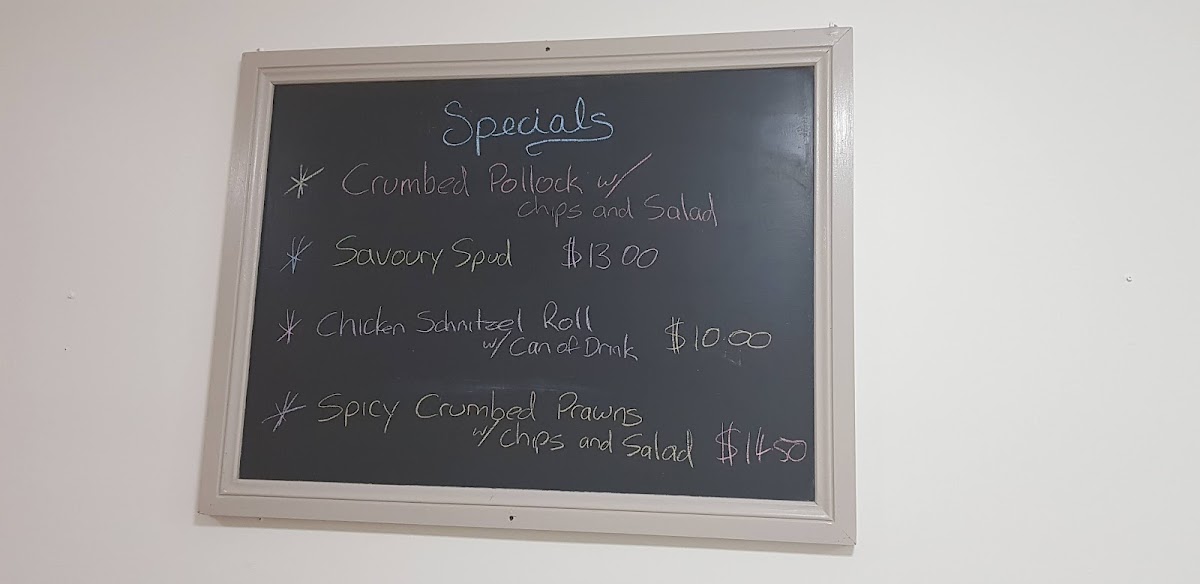 Specials
* Crumbed Pollock w/
chips and Salad
* Savoury Spud $13.00
* Chicken Schnitzel Roll
w/ Can of Drink $10.00
* Spicy Crumbed Prawns
w/ chips and Salad $14.50